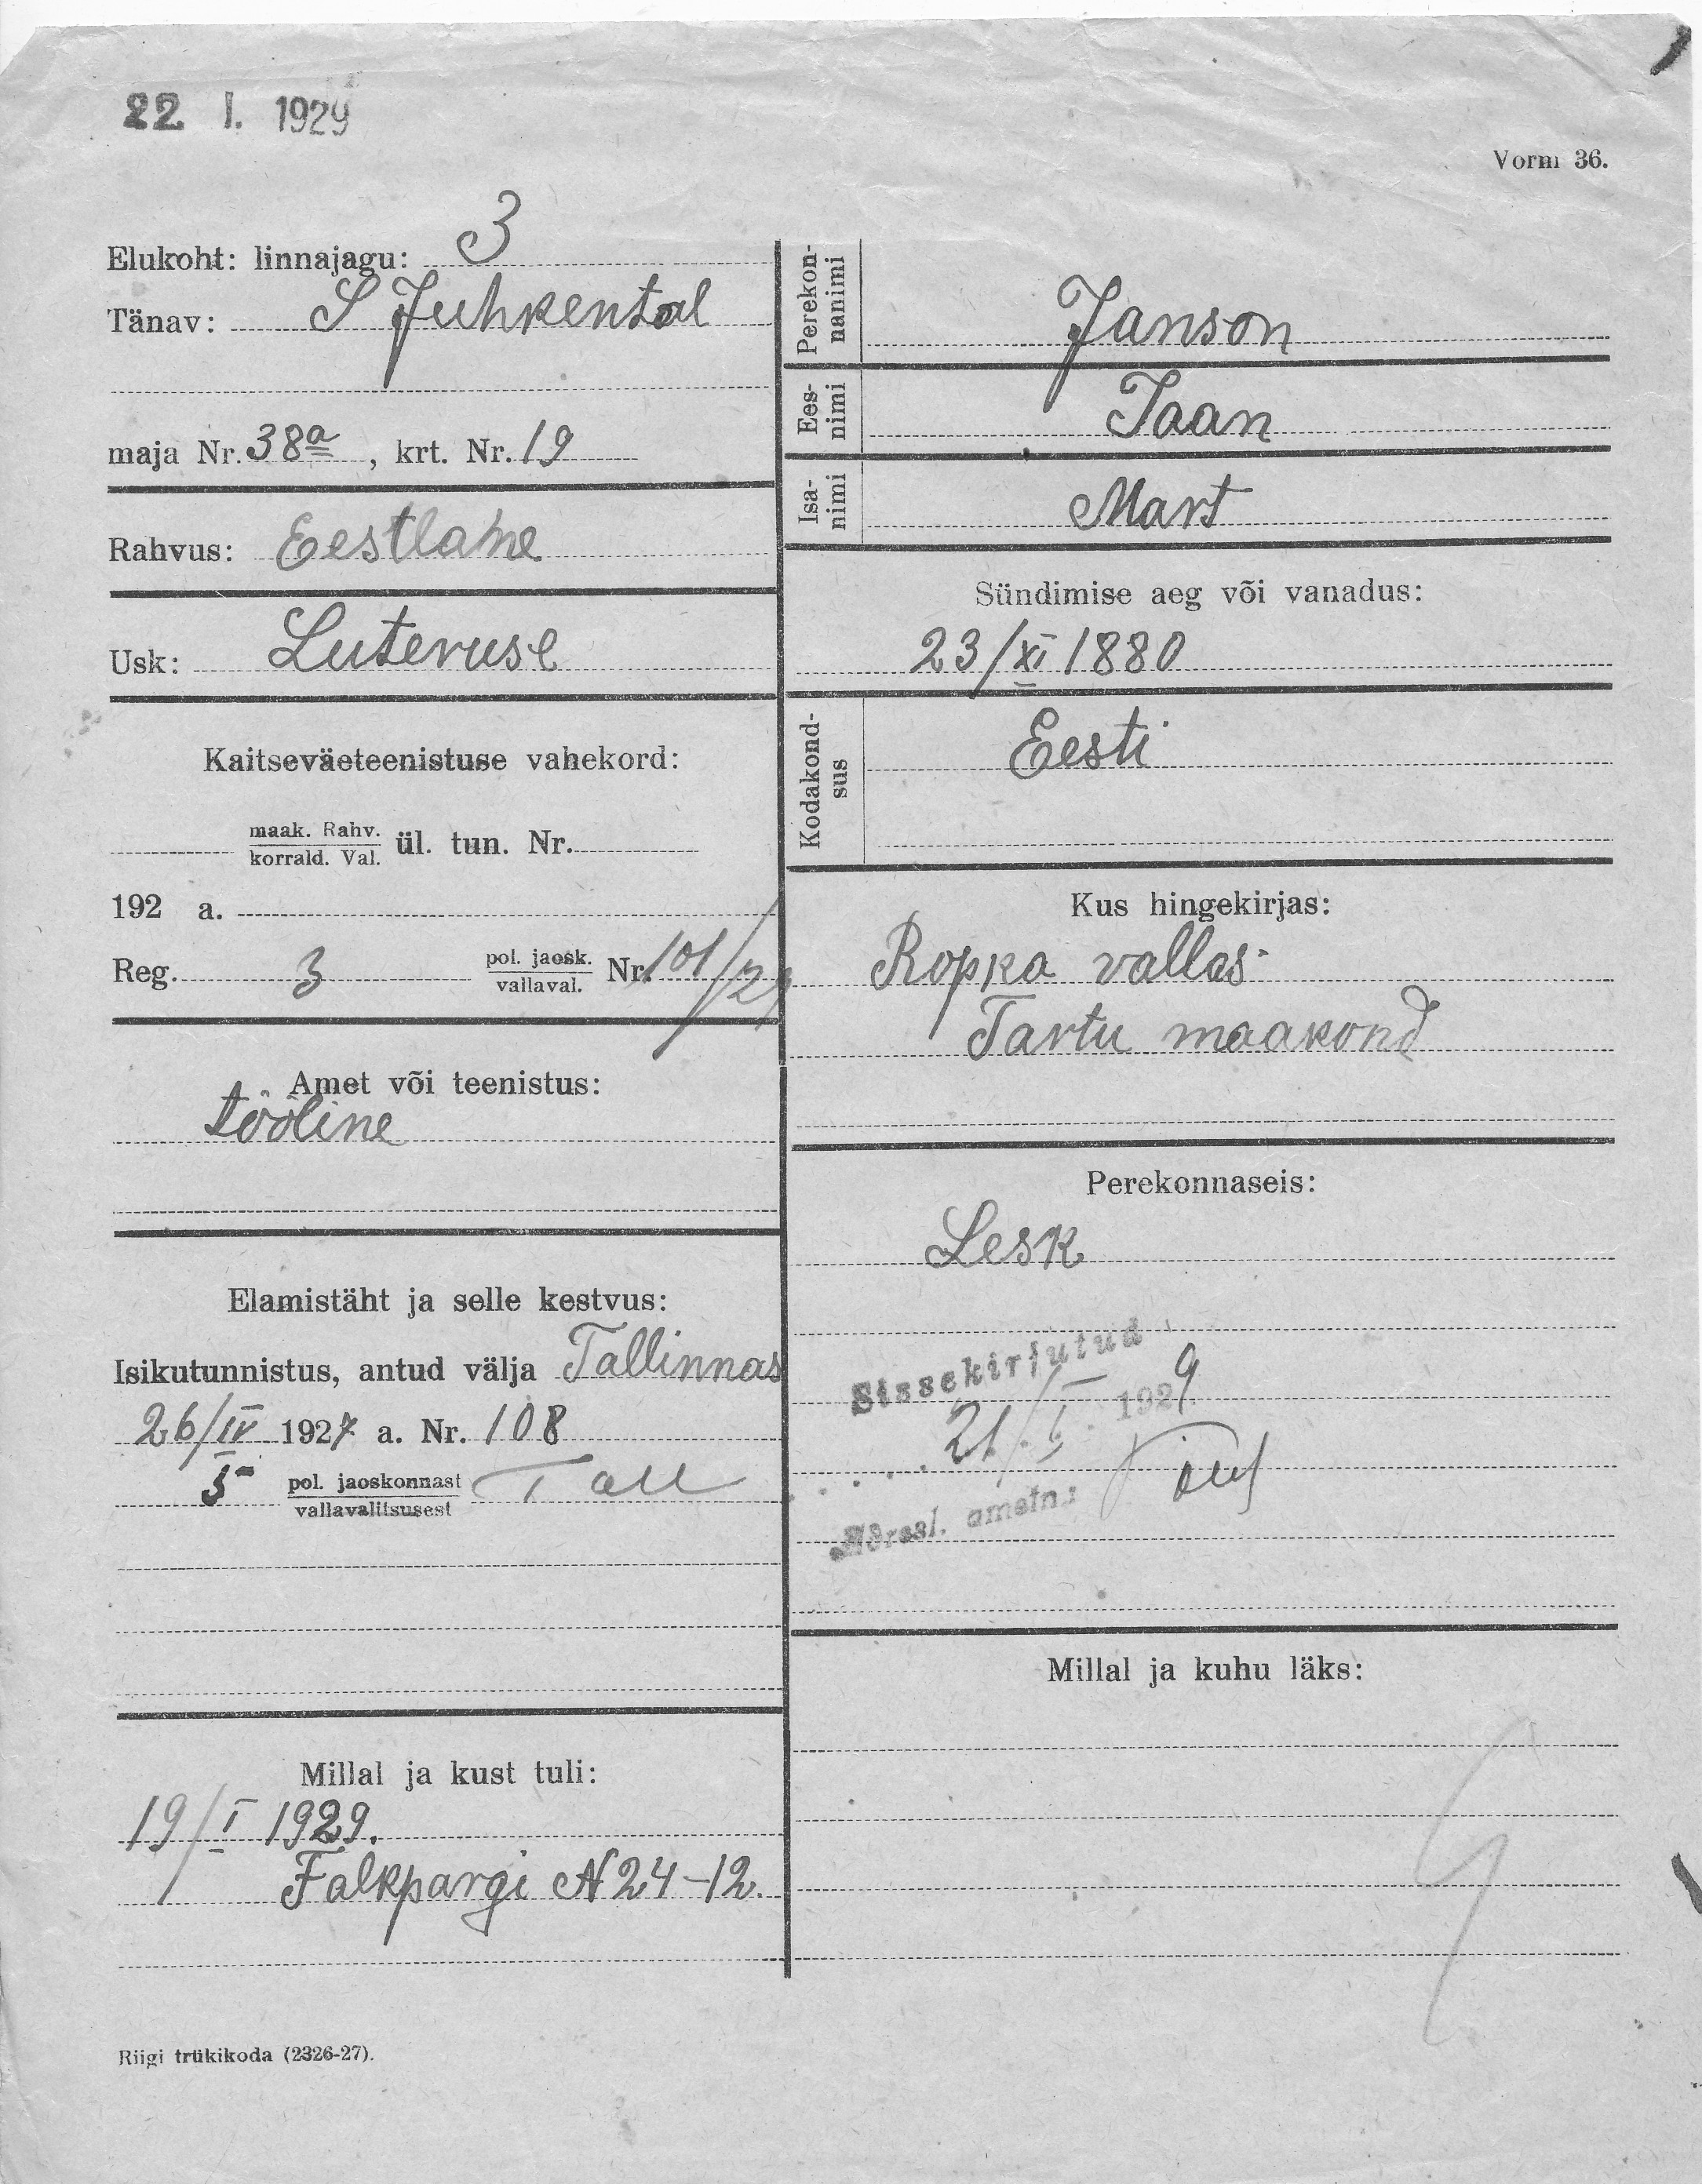 22 I. 1929
Vorm 36.
Elukoht: linnajagu: 3
Tänav: S Juhkental
maja Nr. 38a, krt. Nr. 19
Rahvus: Eestlane
Usk: Luteruse
Kaitseväeteenistuse vahekord:
maak. Rahv.
korrald. Val.
ül. tun. Nr.
192 a.
Reg. 3 pol. jaosk. Nr. 101/29
vallaval.
Amet või teenistus:
tööline
Elamistäht ja selle kestvus:
Isikutunnistus, antud välja Tallinnas
26/IV 1927 a. Nr. 108
5 pol. jaoskonnast Tall
vallavalitsusest
Millal ja kust tuli:
19/I 1929.
Falkpargi N 24-12.
Perekon-
nanimi
Janson
Ees-
nimi
Jaan
Isa-
nimi
Mart
Sündimise aeg või vanadus:
23/XI 1880
Kodakond-
sus
Eesti
Kus hingekirjas:
Ropka vallas
Tartu maakond
Perekonnaseis:
Lesk
Sissekirjutud
21/I 1929
ametn.:
Millal ja kuhu läks:
Riigi trükikoda (2326-27).